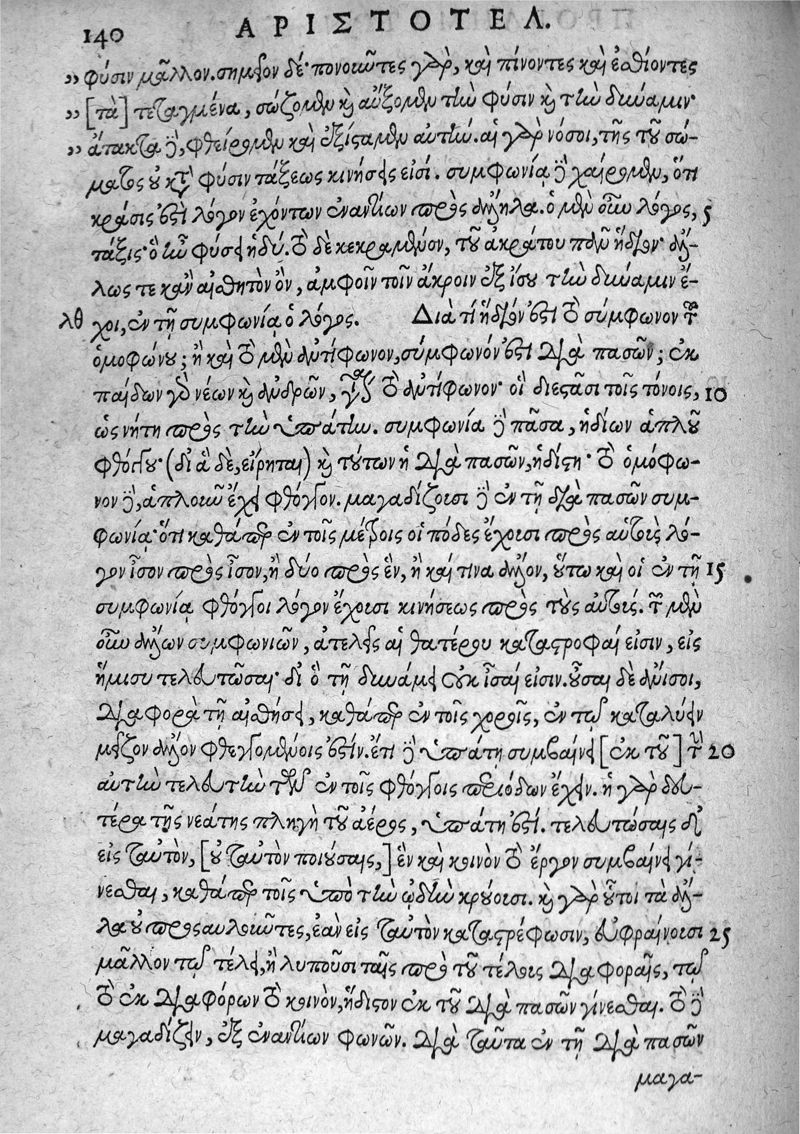 140 ΑΡΙΣΤΟΤΕΛ.
„ φύσιν μᾶλλον. σημεῖον δέ· πονοῦντες γὰρ, καὶ πίνοντες καὶ ἐσθίοντες
„ [τὰ] τεταγμένα, σώζομεν κỳ αὔξομεν τὴν φύσιν καὶ τὴν δύναμιν·
„ ἄτακτα δὲ, φθείρομεν καὶ ἐξίσταμεν αὐτήν. αἱ γὰρ νόσοι, τῆς τοῦ σώ-
ματος οὐ κτ φύσιν τάξεως κινήσεις εἰσί. συμφωνίᾳ δὲ χαίρομεν, ὅτι
κρᾶσίς ἐστι λόγον ἐχόντων ἐναντίων πρὸς ἄλληλα. ὁ μὲν οὖν λόγος, 5
τάξις· ὃ ἦν φύσει ἡδύ. τὸ δὲ κεκραμένον, τοῦ ἀκράτου πᾶν ἥδιον· ἄλ-
λως τε κἂν αἰσθητὸν ὂν, ἀμφοῖν τοῖν ἄκροιν ἐξ ἴσου τὴν δύναμιν ἔ-
λθ χοι, ἐν τῇ συμφωνίᾳ ὁ λόγος. Διὰ τί ἥδιόν ἐστι τὸ σύμφωνον τοῦ
ὁμοφώνου; ἢ καὶ τὸ μὲν ἀντίφωνον, σύμφωνόν ἐστι διὰ πασῶν; ἐκ
παίδων γὰρ νέων καὶ ἀνδρῶν, γίνεται τὸ ἀντίφωνον· οἳ διεστᾶσι τοῖς τόνοις, 10
ὡς νήτη πρὸς τὴν ὑπάτην. συμφωνία δὲ πᾶσα, ἡδίων ἁπλοῦ
φθόγγου· (δι' ἃ δὲ, εἴρηται) καὶ τούτων ἡ διὰ πασῶν, ἡδίστη· τὸ ὁμόφω-
νον δὲ, ἁπλοῦν ἔχει φθόγγον. μαγαδίζουσι δὲ ἐν τῇ διὰ πασῶν συμ-
φωνίᾳ· ὅτι καθάπερ ἐν τοῖς μέτροις οἱ πόδες ἔχουσι πρὸς αὑτοὺς λό-
γον ἴσον πρὸς ἴσον, ἢ δύο πρὸς ἓν, ἢ καί τινα ἄλλον, οὕτω καὶ οἱ ἐν τῇ 15
συμφωνίᾳ φθόγγοι λόγον ἔχουσι κινήσεως πρὸς τοὺς αὑτούς. τῶν μὲν
οὖν ἄλλων συμφωνιῶν, ἀτελεῖς αἱ θατέρου καταστροφαί εἰσιν, εἰς
ἥμισυ τελευτῶσαι· δι' ὃ τῇ δυνάμει οὐκ ἴσαί εἰσιν. οὖσαι δὲ ἄνισοι,
διαφορὰ τῇ αἰσθήσει, καθάπερ ἐν τοῖς χοροῖς, ἐν τῷ καταλύειν
μεῖζον ἄλλον φθεγγομένοις ἐστίν. ἔτι δὲ ὑπάτη συμβαίνει [ἐκ τοῦ] τὴν 20
αὐτὴν τελευτὴν τῶν ἐν τοῖς φθόγγοις περιόδων ἔχειν. ἡ γὰρ δευ-
τέρα τῆς νεάτης πληγὴ τοῦ ἀέρος, ὑπάτη ἐστί. τελευτώσαις δ'
εἰς ταὐτὸν, [οὐ ταὐτὸν ποιούσαις,] ἓν καὶ κοινὸν τὸ ἔργον συμβαίνει γί-
νεσθαι, καθάπερ τοῖς ὑπὸ τὴν ᾠδὴν κρούουσι. καὶ γὰρ οὗτοι τὰ ἄλ-
λα οὐ προσαυλοῦντες, ἐὰν εἰς ταὐτὸν καταστρέφωσιν, εὐφραίνουσι 25
μᾶλλον τῷ τέλει, ἢ λυποῦσι ταῖς πρὸ τοῦ τέλους διαφοραῖς, τῷ
τὸ ἐκ διαφόρων τὸ κοινὸν, ἥδιστον ἐκ τοῦ διὰ πασῶν γίνεσθαι. τὸ δὲ
μαγαδίζειν, ἐξ ἐναντίων φωνῶν. διὰ ταῦτα ἐν τῇ διὰ πασῶν
μαγα-